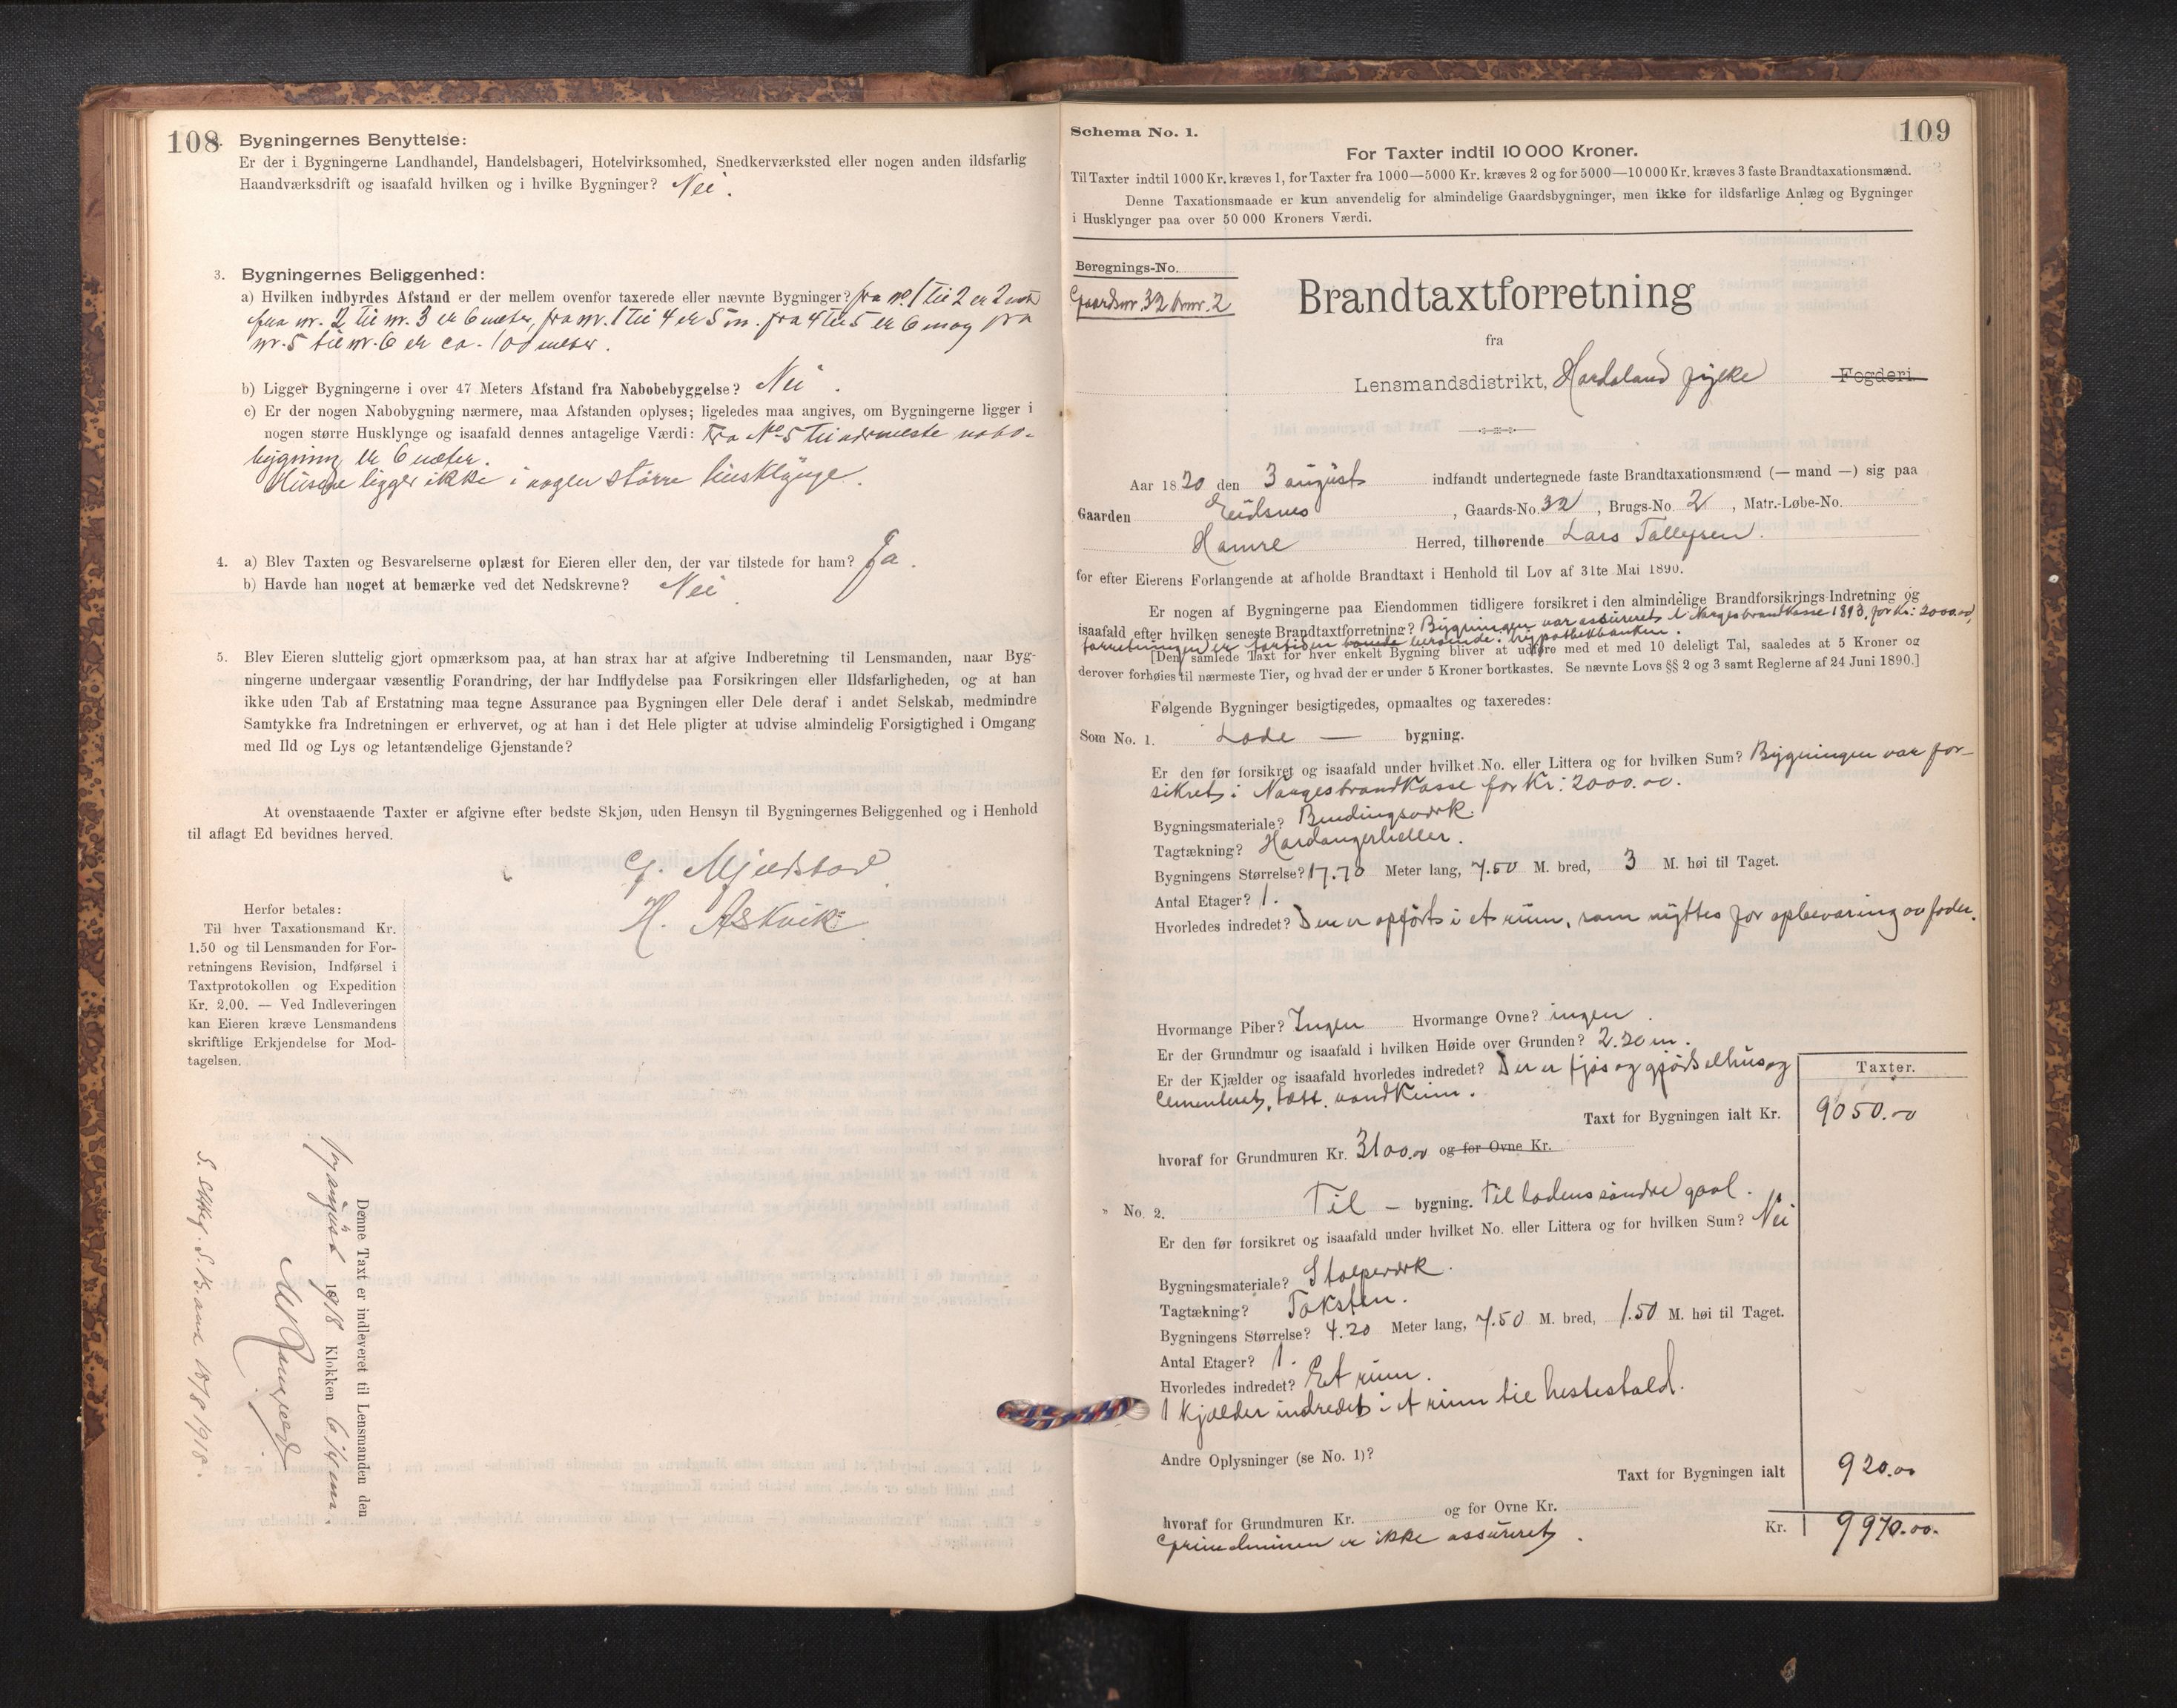 108
Bygningernes Benyttelse:
Er der i Bygningerne Landhandel, Handelsbageri, Hotelvirksomhed, Snedkerværksted eller nogen anden ildsfarlig
Haandværksdrift og isaafald hvilken og i hvilke Bygninger? Nei.
3. Bygningernes Beliggenhed:
a) Hvilken indbyrdes Afstand er der mellem ovenfor taxerede eller nævnte Bygninger? fra nr. 1 til 2 er 2 mtr
fra nr. 2 til nr. 3 er 6 meter, fra nr. 1 til 4 er 5 m. fra 4 til 5 er 6 m og fra
nr. 5 til nr. 6 er ca. 100 meter.
b) Ligger Bygningerne i over 47 Meters Afstand fra Nabobebyggelse? Nei.
c) Er der nogen Nabobygning nærmere, maa Afstanden oplyses; ligeledes maa angives, om Bygningerne ligger i
nogen større Husklynge og isaafald dennes antagelige Værdi: Fra No 5 til nærmeste nabo-
bygning er 6 meter.
Husene ligger ikke i nogen större husklynge.
4. a) Blev Taxten og Besvarelserne oplæst for Eieren eller den, der var tilstede for ham? Ja.
b) Havde han noget at bemærke ved det Nedskrevne? Nei
5. Blev Eieren sluttelig gjort opmærksom paa, at han strax har at afgive Indberetning til Lensmanden, naar Byg-
ningerne undergaar væsentlig Forandring, der har Indflydelse paa Forsikringen eller Ildsfarligheden, og at han
ikke uden Tab af Erstatning maa tegne Assurance paa Bygningen eller Dele deraf i andet Selskab, medmindre
Samtykke fra Indretningen er erhvervet, og at han i det Hele pligter at udvise almindelig Forsigtighed i Omgang
med Ild og Lys og letantændelige Gjenstande?
At ovenstaaende Taxter er afgivne efter bedste Skjøn, uden Hensyn til Bygningernes Beliggenhed og i Henhold
til aflagt Ed bevidnes herved.
G. Mjelstad
H. Askvik
Herfor betales:
Til hver Taxationsmand Kr.
1.50 og til Lensmanden for For-
retningens Revision, Indførsel i
Taxtprotokollen og Expedition
Kr. 2.00. — Ved Indleveringen
kan Eieren kræve Lensmandens
skriftlige Erkjendelse for Mod-
tagelsen.
Denne Taxt er indleveret til Lensmanden den
august 1918 Klokken 6
18/8 1918.
Schema No. 1.
109
For Taxter indtil 10 000 Kroner.
Til Taxter indtil 1000 Kr. kræves 1, for Taxter fra 1000—5000 Kr. kræves 2 og for 5000—10 000 Kr. kræves 3 faste Brandtaxationsmænd.
Denne Taxationsmaade er kun anvendelig for almindelige Gaardsbygninger, men ikke for ildsfarlige Anlæg og Bygninger
i Husklynger paa over 50 000 Kroners Værdi.
Beregnings-No.
Gaardsnr. 32 brnr. 2
Brandtaxtforretning
fra
Lensmandsdistrikt, Hordaland fylke Fogderi.
Aar 1820 den 3 august indfandt undertegnede faste Brandtaxationsmænd (— mand —) sig paa
Gaarden Eidsnes, Gaards-No. 32, Brugs-No. 2, Matr.-Løbe-No.
Hamre Herred, tilhørende Lars Tollefsen.
for efter Eierens Forlangende at afholde Brandtaxt i Henhold til Lov af 31te Mai 1890.
Er nogen af Bygningerne paa Eiendommen tidligere forsikret i den almindelige Brandforsikrings-Indretning og
isaafald efter hvilken seneste Brandtaxtforretning? Bygningen var assureret i Norges brandkasse 1893, for Kr: 2000.00,
forretningen er fortiden beroende i hypothekbanken.
[Den samlede Taxt for hver enkelt Bygning bliver at udføre med et med 10 deleligt Tal, saaledes at 5 Kroner og
derover forhøies til nærmeste Tier, og hvad der er under 5 Kroner bortkastes. Se nævnte Lovs §§ 2 og 3 samt Reglerne af 24 Juni 1890.]
Følgende Bygninger besigtigedes, opmaaltes og taxeredes:
Som No. 1. Lade — bygning.
Er den før forsikret og isaafald under hvilket No. eller Littera og for hvilken Sum? Bygningen var for-
sikret i Norges brandkasse for Kr: 2000.00.
Bygningsmateriale? Bindingsverk.
Tagtækning? Hardangerheller.
Bygningens Størrelse? 17.70 Meter lang, 7.50 M. bred, 3 M. høi til Taget.
Antal Etager? 1.
Hvorledes indredet? Den er opfört i et rum, som nyttes for opbevaring av foder.
Hvormange Piber? Ingen Hvormange Ovne? ingen.
Er der Grundmur og isaafald i hvilken Høide over Grunden? 2.20 m.
Er der Kjælder og isaafald hvorledes indredet? Der er fjøs og gjödselhus og
Cementeret, tætt. vandkum.
Taxter.
Taxt for Bygningen ialt Kr. 9050.00
hvoraf for Grundmuren Kr. 3100.00 og for Ovne Kr.
" No. 2. Til — bygning. Til ladens søndre gavl.
Er den før forsikret og isaafald under hvilket No. eller Littera og for hvilken Sum? Nei
Bygningsmateriale? Stolperverk.
Tagtækning? Taksten.
Bygningens Størrelse? 4.20 Meter lang, 7.50 M. bred, 1.50 M. høi til Taget.
Antal Etager? 1.
Hvorledes indredet? Et rum.
1 Kjælder indredet i et rum til hestestald.
Andre Oplysninger (se No. 1)?
Taxt for Bygningen ialt 920.00
hvoraf for Grundmuren Kr. og for Ovne Kr.
Grundmuren er ikke assureret.
Kr. 9970.00.